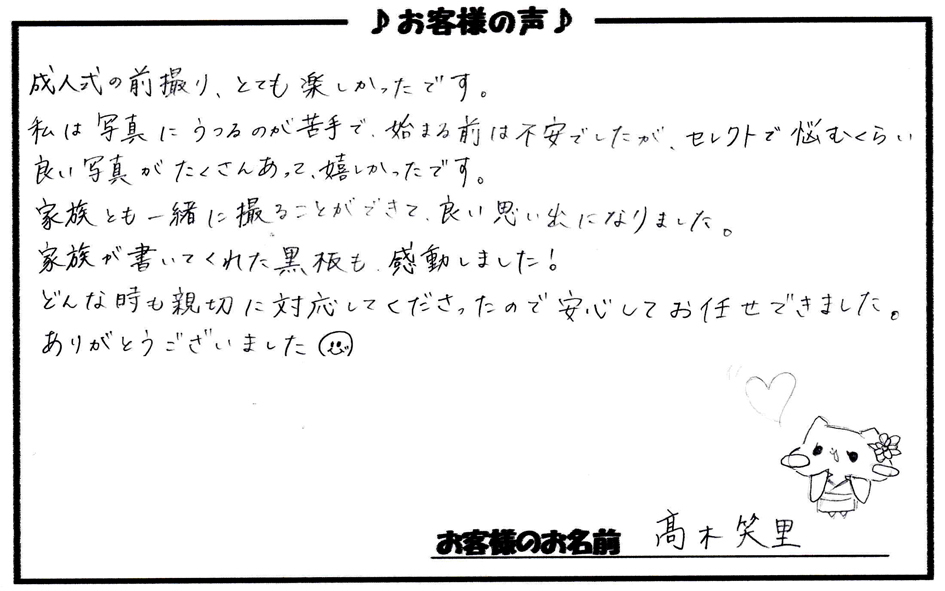 ♪お客様の声♪
成人式の前撮り、とても楽しかったです。
私は写真にうつるのが苦手で、始まる前は不安でしたが、セレクトで悩むくらい
良い写真がたくさんあって、嬉しかったです。
家族とも一緒に撮ることができて、良い思い出になりました。
家族が書いてくれた黒板も、感動しました!
どんな時も親切に対応してくださったので安心してお任せできました。
ありがとうございました
お客様のお名前 髙木笑里